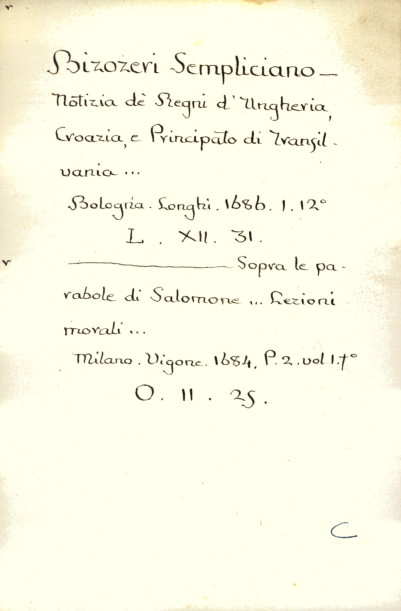 Bizozeri Sempliciano —
Notizia dè Regni d'Ungheria,
Croazia, e Principato di Transil-
vania ...
Bologna. Longhi. 1686. 1. 12°
L. XII. 31.
——— Sopra le pa-
rabole di Salomone ... Lezioni
morali ...
Milano. Vigone. 1684. P. 2. vol 1. 4°
O. II. 25.
C